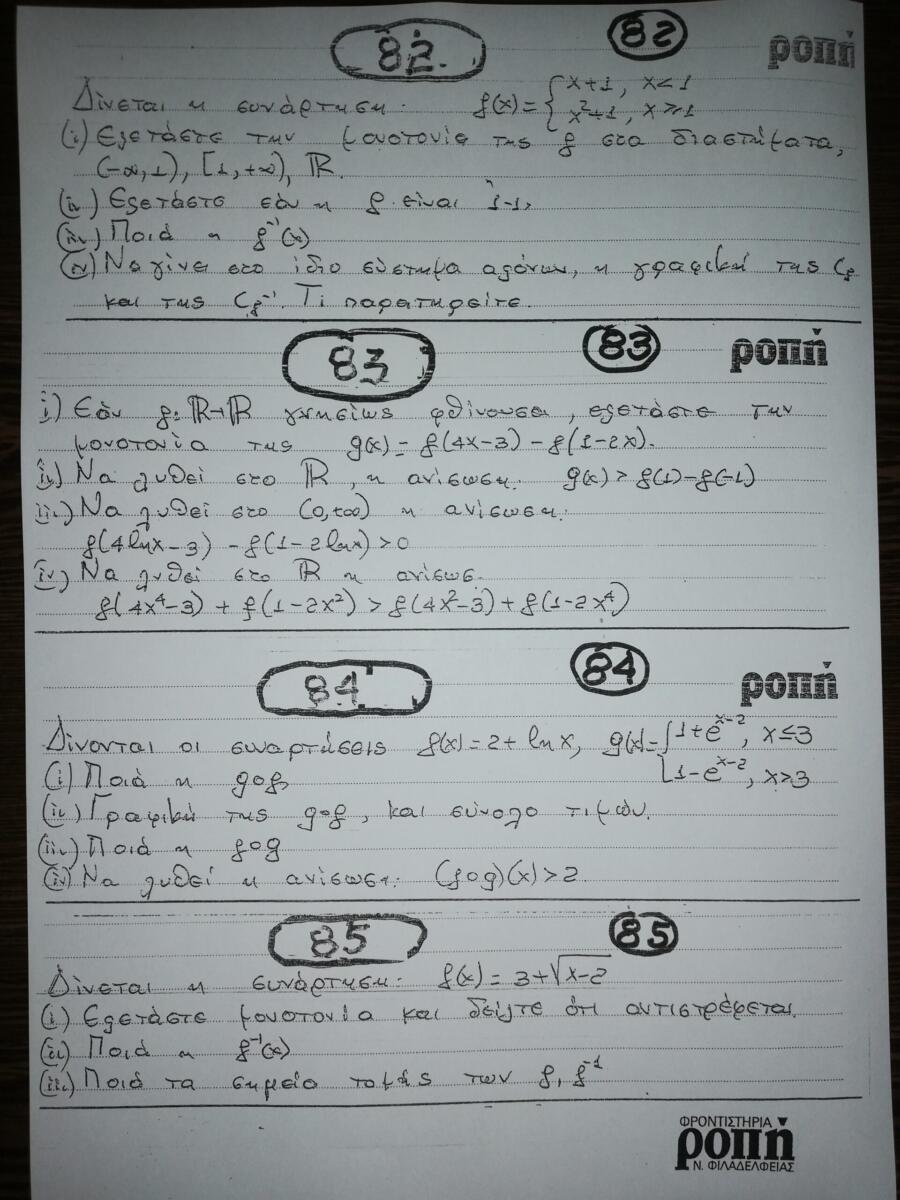 82. 82 ροπή
Δίνεται η συνάρτηση: f(x) = { x+1, x<1
x²+1, x≥1
(i) Εξετάστε την μονοτονία της f στα διαστήματα,
(-∞,1), [1,+∞), ℝ.
(ii) Εξετάστε εάν η f είναι 1-1,
(iii) Ποιά η f⁻¹(x)
(iv) Να γίνει στο ίδιο σύστημα αξόνων, η γραφική της Cf
και της Cf⁻¹. Τι παρατηρείτε.
83 83 ροπή
i) Εάν f: ℝ→ℝ γνησίως φθίνουσα, εξετάστε την
μονοτονία της g(x) = f(4x-3) - f(1-2x).
ii) Να λυθεί στο ℝ, η ανίσωση: g(x) > f(1)-f(-1)
iii) Να λυθεί στο (0,+∞) η ανίσωση:
f(4lnx-3) - f(1-2lnx) > 0
iv) Να λυθεί στο ℝ η ανίσωσ.
f(4x⁴-3) + f(1-2x²) > f(4x²-3) + f(1-2x⁴)
84 84 ροπή
Δίνονται οι συναρτήσεις f(x) = 2+lnx, g(x) = { 1+eˣ⁻², x≤3
1-eˣ⁻², x>3
(i) Ποιά η gof,
(ii) Γραφική της gof, και σύνολο τιμών.
(iii) Ποιά η fog
(iv) Να λυθεί η ανίσωση: (fog)(x)>2
85 85
Δίνεται η συνάρτηση: f(x) = 3+√x-2
(i) Εξετάστε μονοτονία και δείξτε ότι αντιστρέφεται.
(ii) Ποιά η f⁻¹(x)
(iii) Ποιά τα σημείο τομής των f, f⁻¹
ΦΡΟΝΤΙΣΤΗΡΙΑ
ροπή
Ν. ΦΙΛΑΔΕΛΦΕΙΑΣ